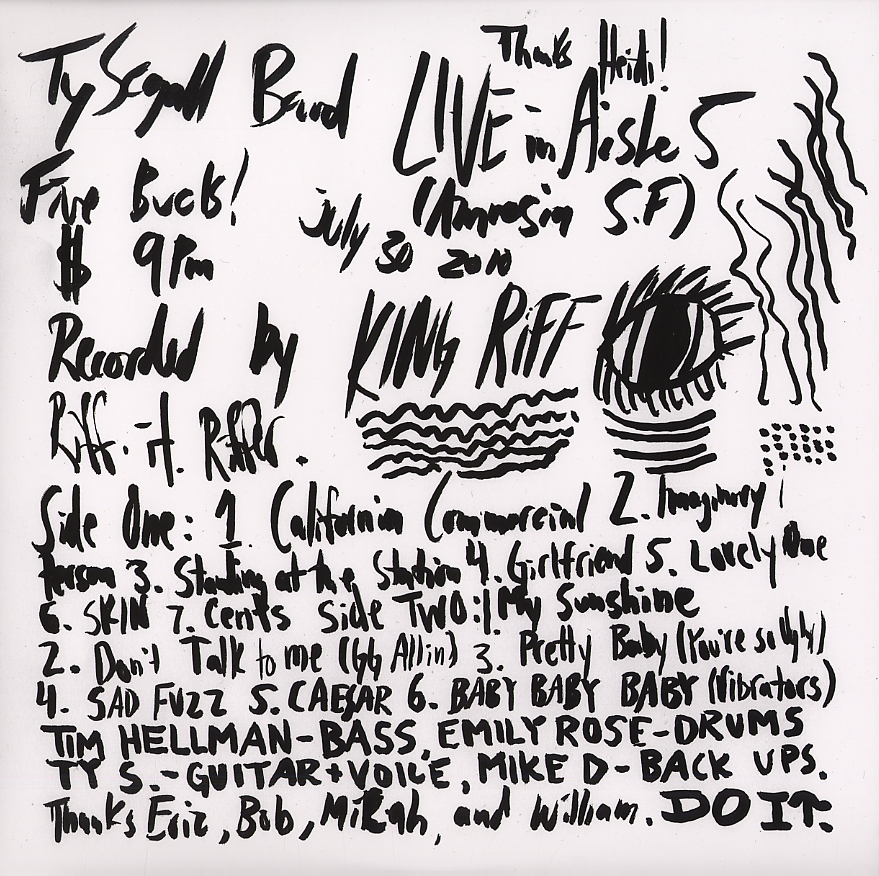 Thanks Heidi!
Ty Segall Band LIVE in Aisle 5
Five Bucks! (Amnesia S.F)
$ 9Pm july 30 2010
Recorded by KING RiFF
Riff. it. Riffer.
Side One: 1. California Commercial 2. Imaginary
Person 3. Standing at the Station 4. Girlfriend 5. Lovely One
6. SKIN 7. Cents Side TWO: 1 My Sunshine
2. Don't Talk to me (GG Allin) 3. Pretty Baby (You're so Ugly)
4. SAD FUZZ 5. CAESAR 6. BABY BABY BABY (Vibrators)
TIM HELLMAN-BASS, EMILY ROSE-DRUMS
TY S.-GUITAR+VOICE, MIKE D-BACK UPS.
Thanks Eric, Bob, Mikah, and William. DO IT.